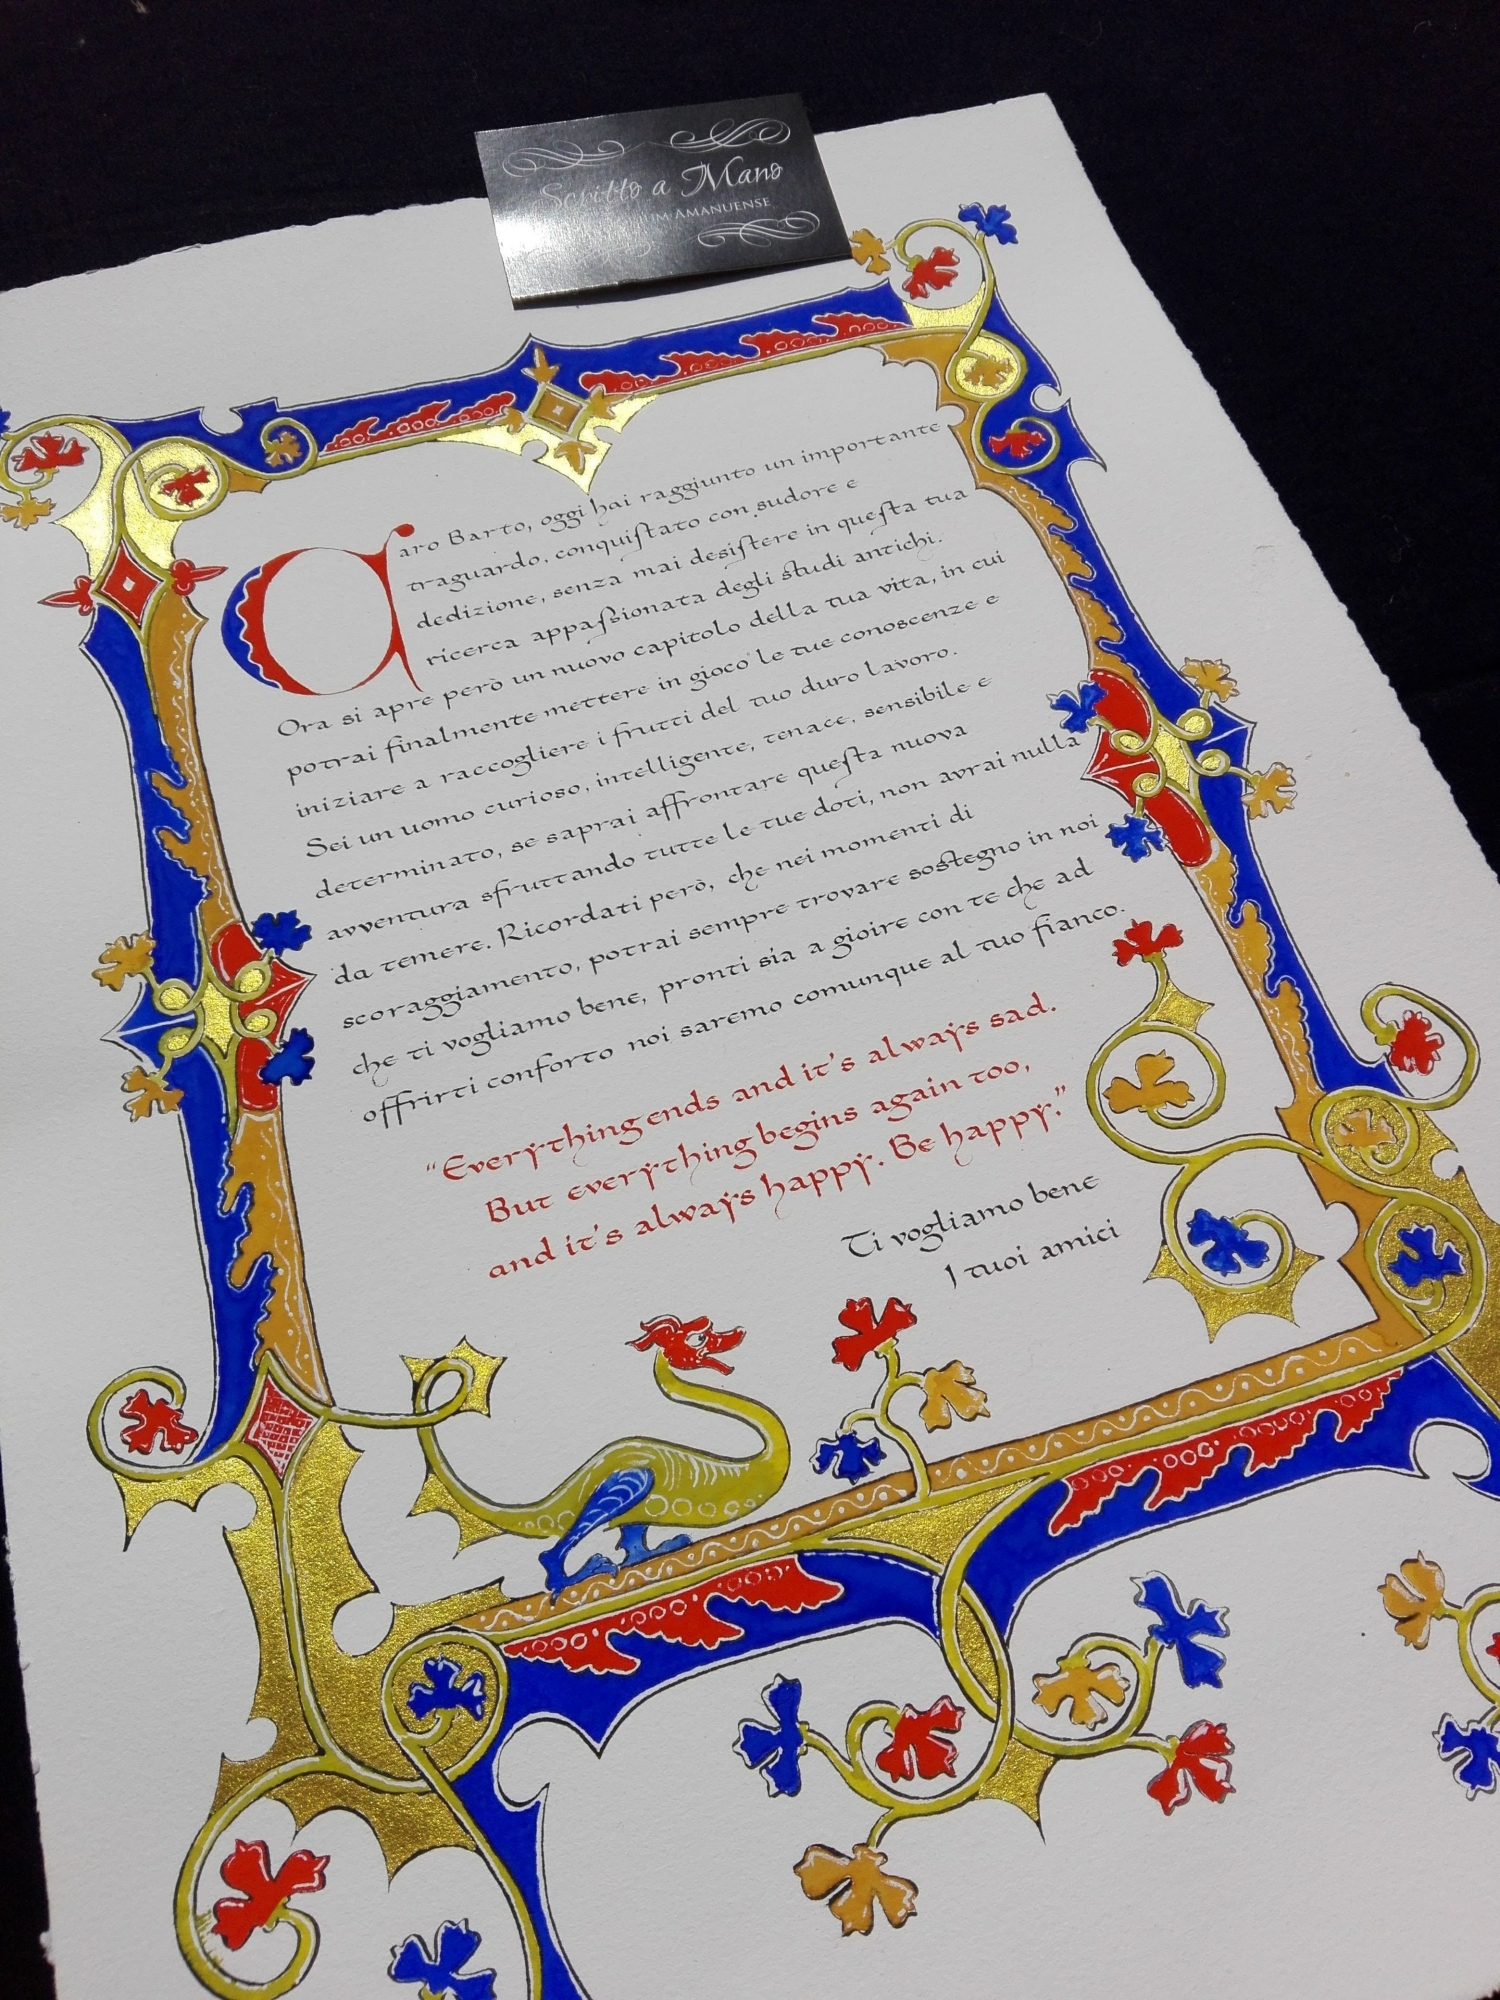 Scritto a Mano
Amanuense
Caro Barto, oggi hai raggiunto un importante
traguardo, conquistato con sudore e
dedizione, senza mai desistere in questa tua
ricerca appassionata degli studi antichi.
Ora si apre però un nuovo capitolo della tua vita, in cui
potrai finalmente mettere in gioco le tue conoscenze e
iniziare a raccogliere i frutti del tuo duro lavoro.
Sei un uomo curioso, intelligente, tenace, sensibile e
determinato, se saprai affrontare questa nuova
avventura sfruttando tutte le tue doti, non avrai nulla
da temere. Ricordati però, che nei momenti di
scoraggiamento, potrai sempre trovare sostegno in noi
che ti vogliamo bene, pronti sia a gioire con te che ad
offrirti conforto noi saremo comunque al tuo fianco.
“Everything ends and it's always sad.
But everything begins again too,
and it's always happy. Be happy.”
Ti vogliamo bene
I tuoi amici